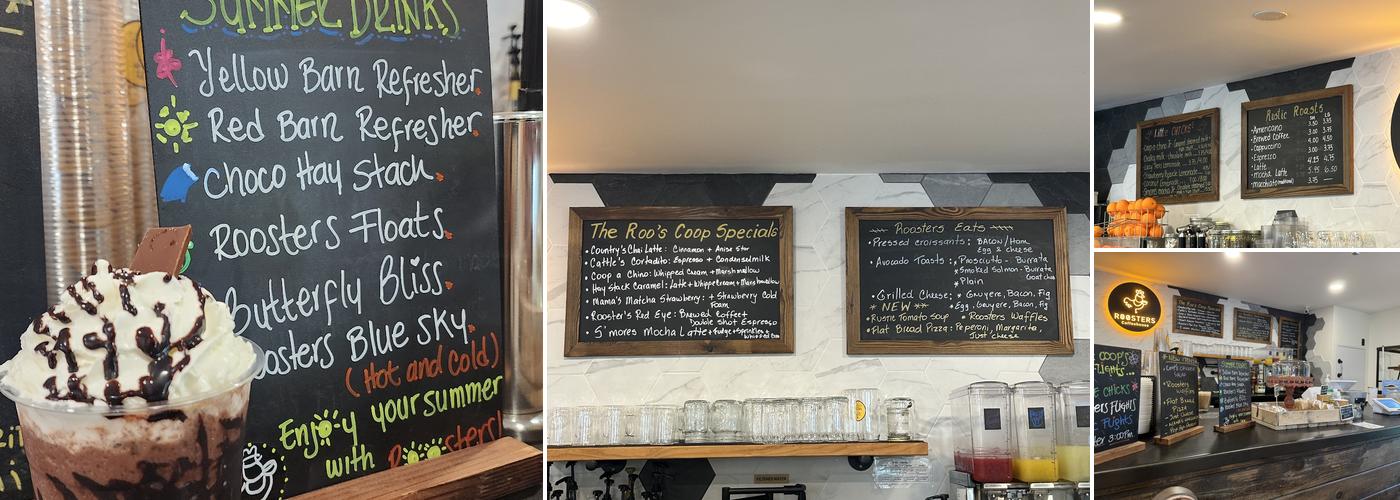 SUMMER DRINKS
Yellow Barn Refresher.
Red Barn Refresher.
Choco Hay Stack.
Roosters Floats.
Butterfly Bliss.
oosters Blue Sky.
(Hot and Cold)
Enjoy your summer
with Roosters!
The Roo's Coop Specials
• Country's Chai Latte: Cinnamon + Anise Star
• Cattle's Cortadito: Espresso + Condensed milk
• Coop a Chino: Whipped Cream + Marshmallow
• Hay Stack Caramel: Latte + Whipp Cream + Marshmallow
• Mama's Matcha Strawberry: + Strawberry Cold
Foam
• Rooster's Red Eye: Brewed Coffee +
Double Shot Espresso
• S'mores Mocha Latte + fudge + Sprinkles +
Whipped Cream
Roosters Eats
• Pressed croissants: BACON/Ham
Egg & cheese
• Avocado Toasts: * Prosciutto - Burrata
* Smoked Salmon - Burrata
Goat cheese
* Plain
• Grilled Cheese: * Gruyere, Bacon, Fig
* NEW * * Egg, Gruyere, Bacon, Fig
• Rustic Tomato Soup * Roosters Waffles
• Flat Bread Pizza: Peperoni, Margarita,
Just cheese
FILTERED WATER
Little CHICKS
Rustic Roasts
SM LG
• Americano 3.50 3.95
• Brewed Coffee 3.00 3.75
• Cappuccino 4.00 4.50
• Espresso 3.00 3.75
• Latte 4.15 4.75
• Mocha Latte 5.95 6.50
• macchiato (traditional) 3.75
ROOSTERS
Coffeehouse
The Roo's Coop
COOP'S
FLIGHTS...
CHICKS
FLIGHTS
Flights
after 3:00pm
NEW
Roosters
Flat
Bread
Pizza
SUMMER DRINKS